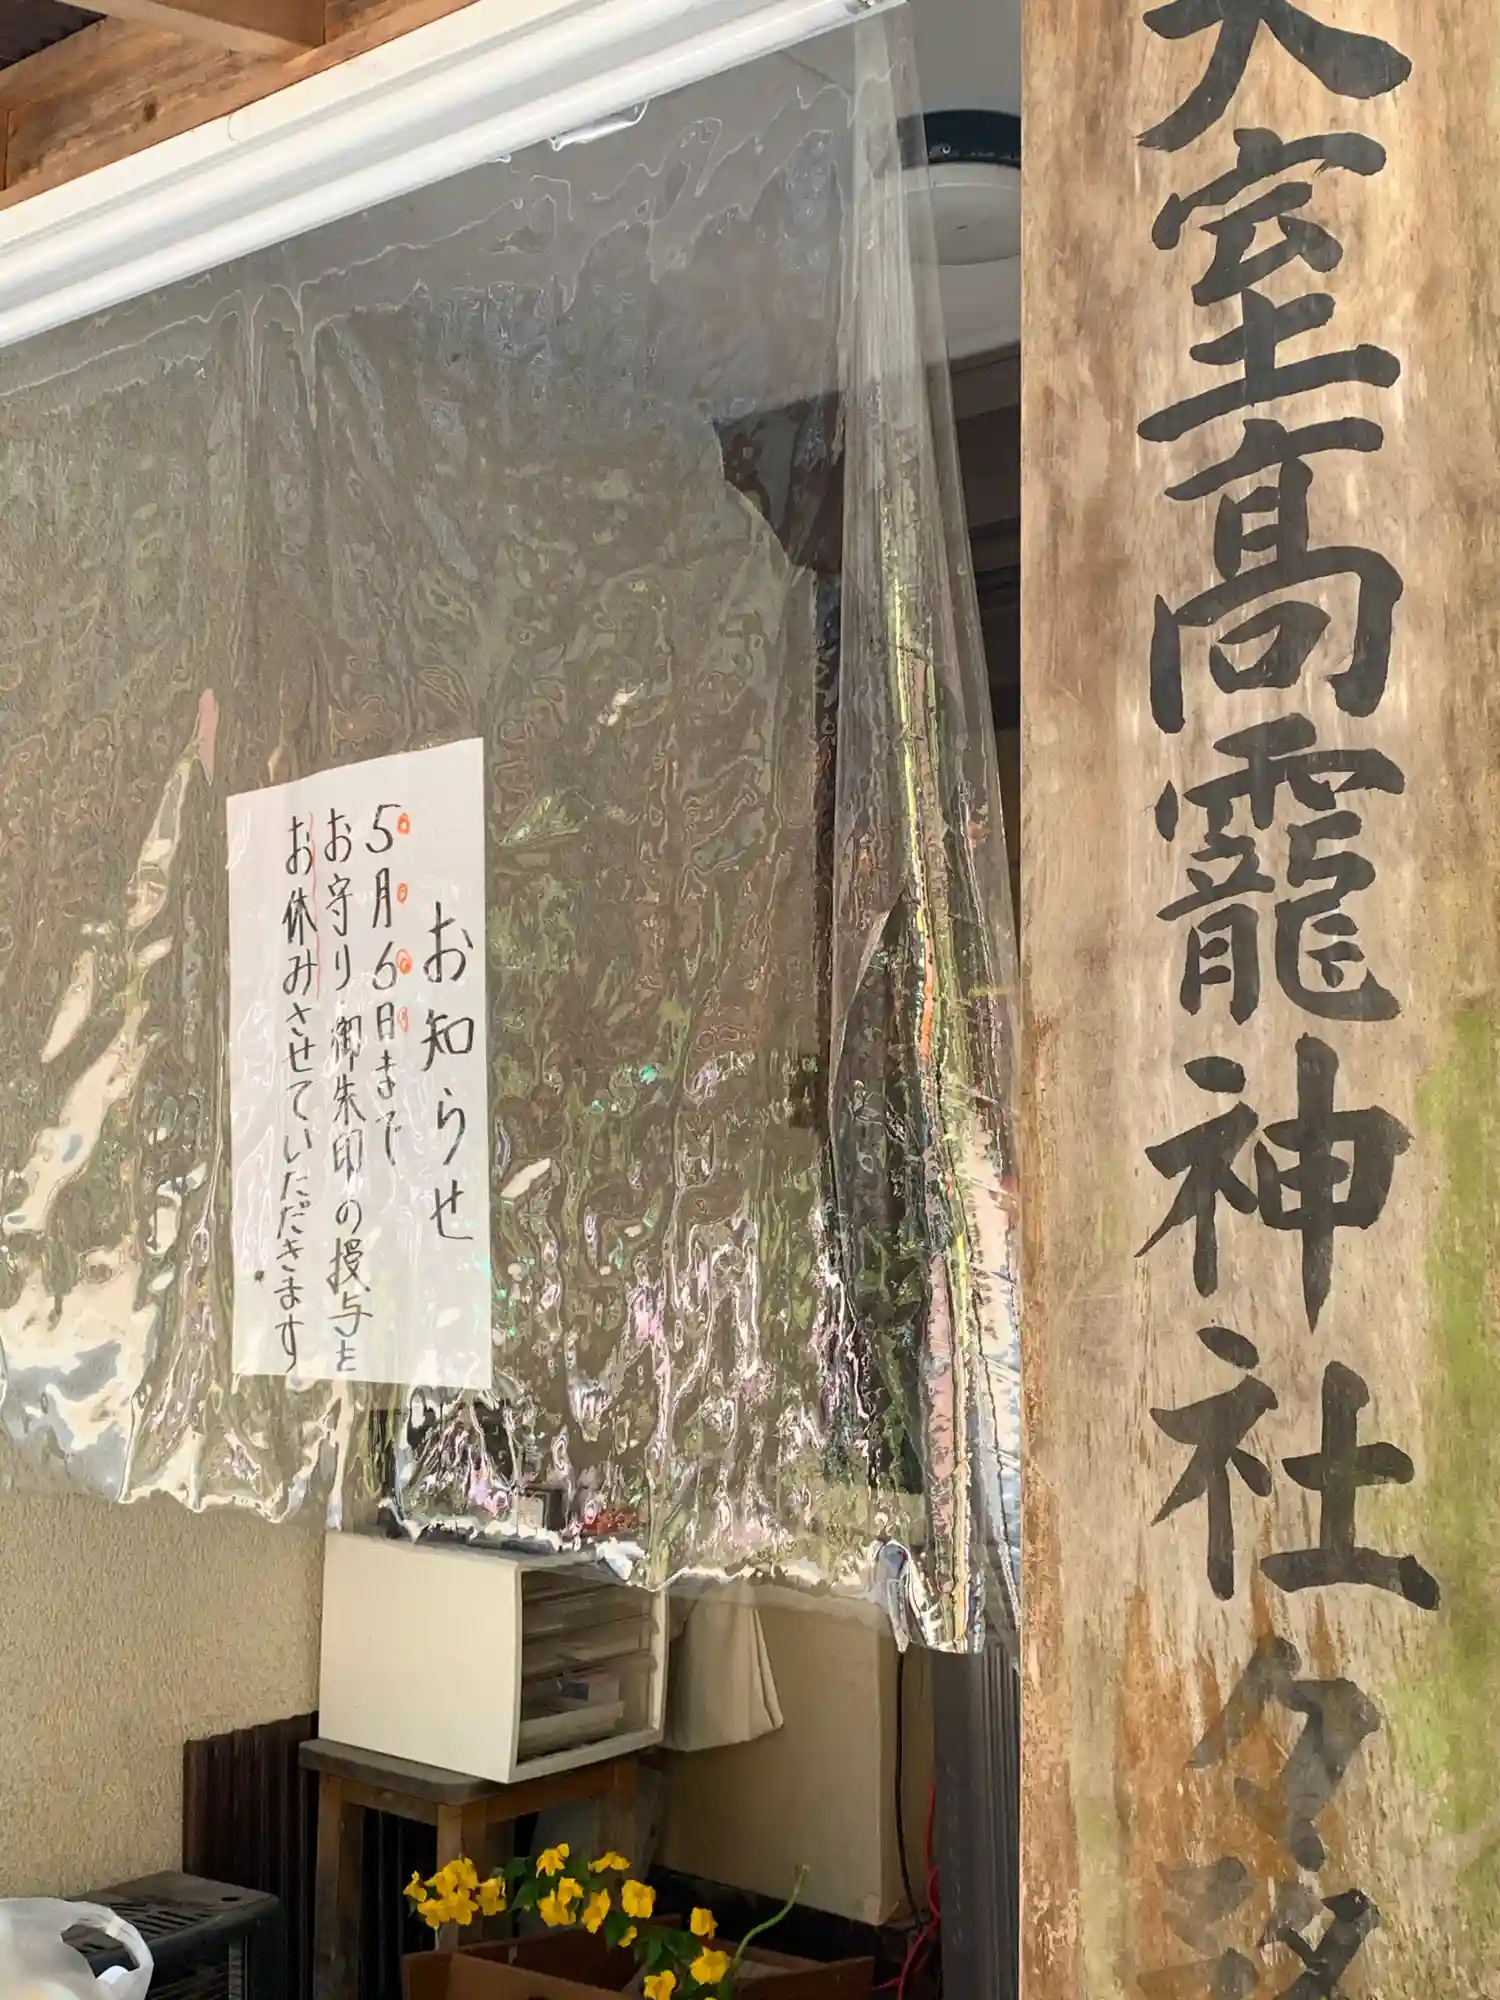 大室高龗神社々務
お知らせ
5月6日まで
お守り御朱印の授与を
お休みさせていただきます